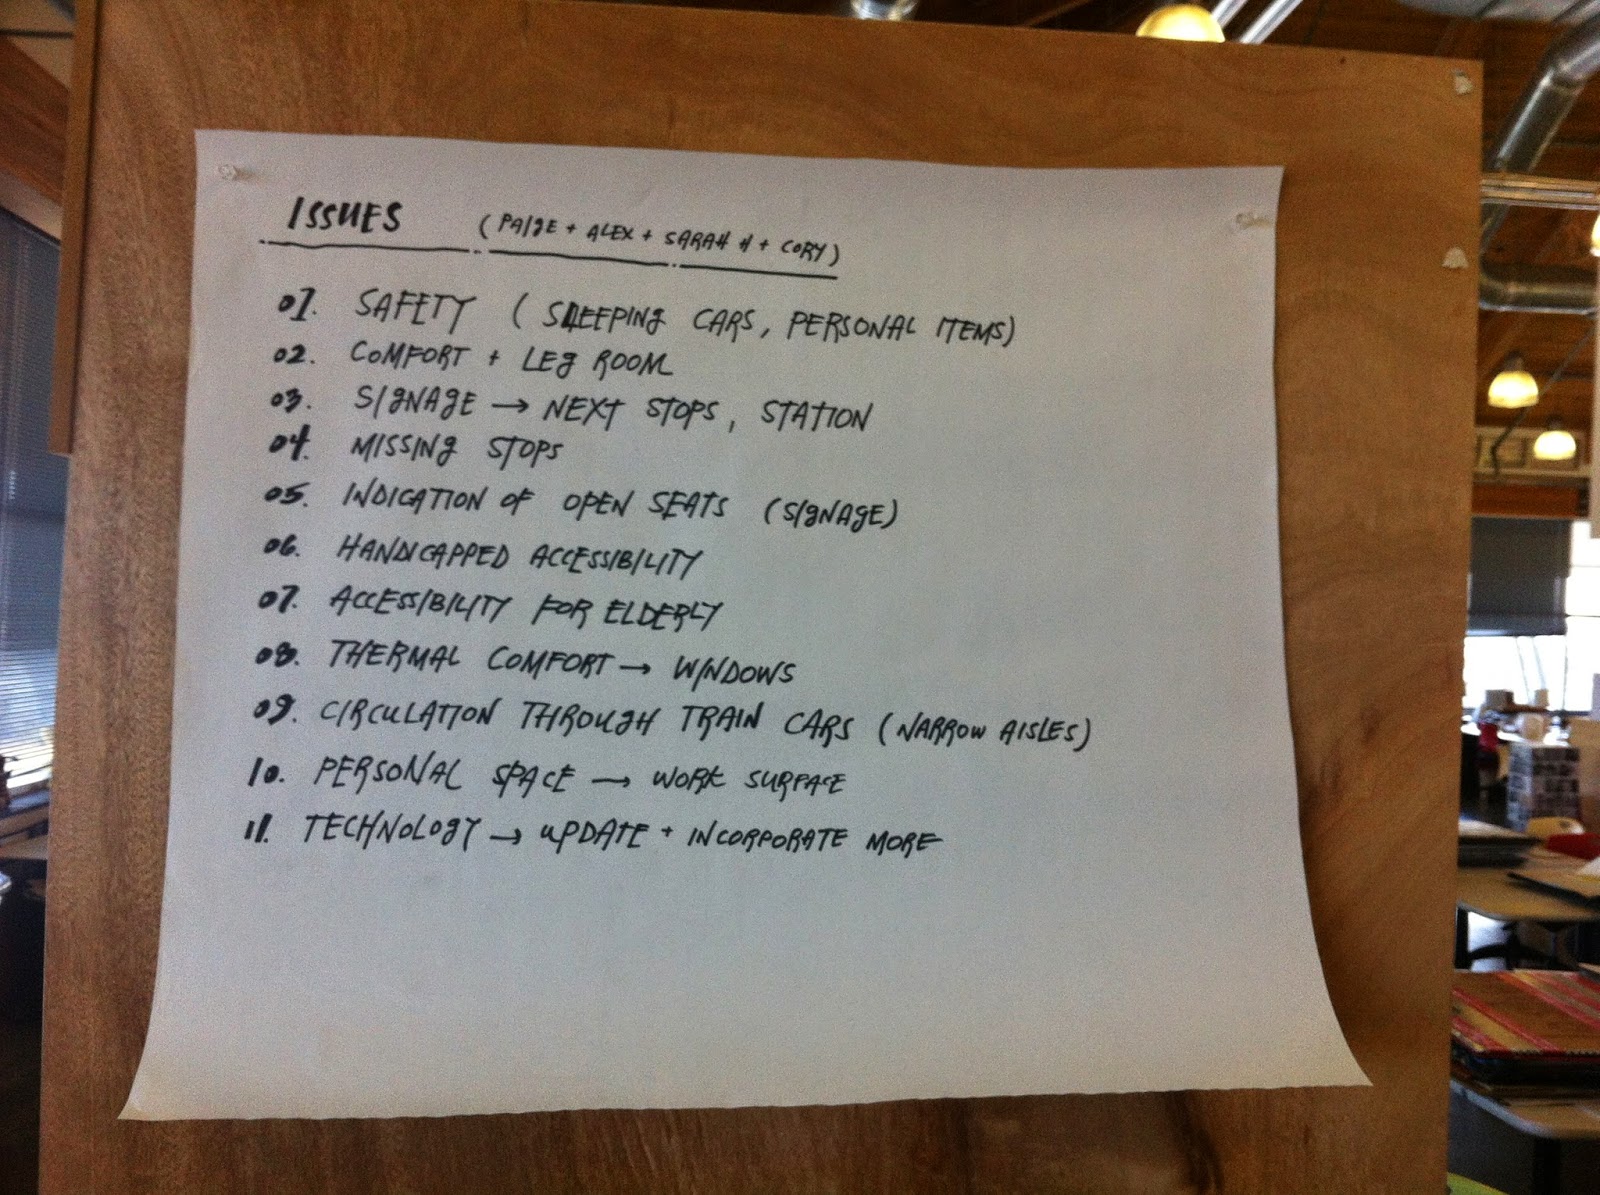 ISSUES (PAIGE + ALEX + SARAH H + CORY)
01. SAFETY (SLEEPING CARS, PERSONAL ITEMS)
02. COMFORT + LEG ROOM
03. SIGNAGE → NEXT STOPS, STATION
04. MISSING STOPS
05. INDICATION OF OPEN SEATS (SIGNAGE)
06. HANDICAPPED ACCESSIBILITY
07. ACCESSIBILITY FOR ELDERLY
08. THERMAL COMFORT → WINDOWS
09. CIRCULATION THROUGH TRAIN CARS (NARROW AISLES)
10. PERSONAL SPACE → WORK SURFACE
11. TECHNOLOGY → UPDATE + INCORPORATE MORE